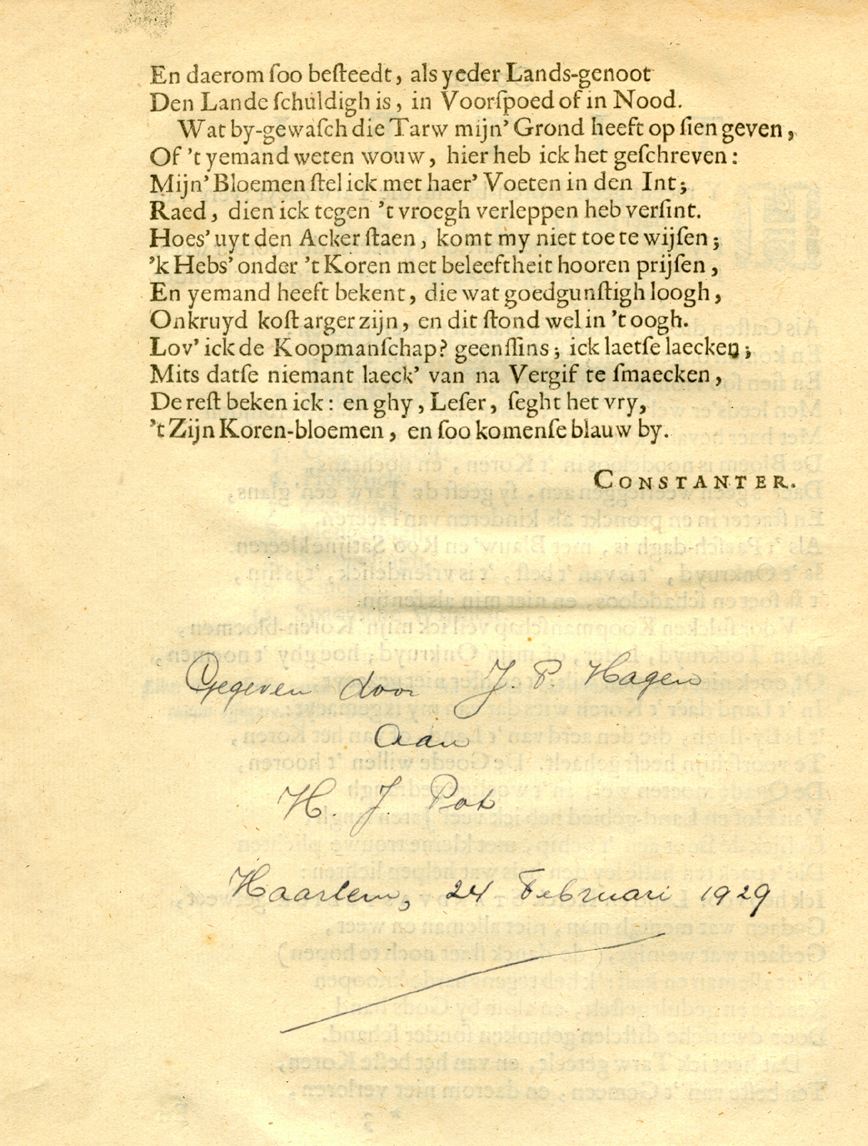 En daerom ſoo beſteedt, als yeder Lands-genoot
Den Lande ſchuldigh is, in Voorſpoed of in Nood.
Wat by-gewaſch die Tarw mijn' Grond heeft op ſien geven,
Of 't yemand weten wouw, hier heb ick het geſchreven:
Mijn' Bloemen ſtel ick met haer' Voeten in den Int;
Raed, dien ick tegen 't vroegh verleppen heb verſint.
Hoes' uyt den Acker ſtaen, komt my niet toe te wijſen;
'k Hebs' onder 't Koren met beleeftheit hooren prijſen,
En yemand heeft bekent, die wat goedgunſtigh loogh,
Onkruyd koſt arger zijn, en dit ſtond wel in 't oogh.
Lov' ick de Koopmanſchap? geenſſins; ick laetſe laecken;
Mits datſe niemant laeck' van na Vergif te ſmaecken,
De reſt beken ick: en ghy, Leſer, ſeght het vry,
't Zijn Koren-bloemen, en ſoo komenſe blauw by.
CONSTANTER.
Gegeven door J. P. Hagen
Aan
H. J. Pot
Haarlem, 24 Februari 1929